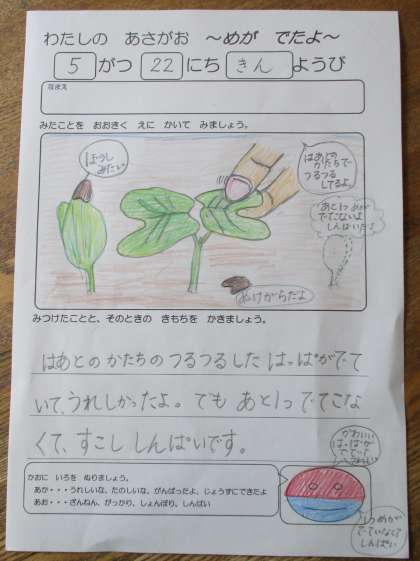 わたしの あさがお ～めが でたよ～
5がつ 22にち きんようび
なまえ
みたことを おおきく えに かいて みましょう。
ぼうし
みたい。
はあとの
かたちで
つるつる
してるよ。
あと1つめが
でてこないよ
しんぱいだよ
ぬけがらだよ
みつけたことと、そのときの きもちを かきましょう。
はあとの かたちの つるつるした はっぱがでて
いて、うれしかったよ。でも あと1つ でてこな
くて、すこし しんぱいです。
かわいい
はっぱが
かおに いろを ぬりましょう。
あか・・・うれしいな、たのしいな、がんばったよ、じょうずにできたよ
あお・・・ざんねん、がっかり、しょんぼり、しんぱい
1つめが
でていなくて
しんぱい